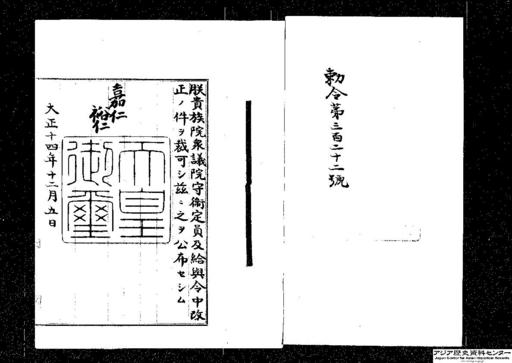 勅令第三百二十二號
朕貴族院衆議院守衞定員及給與令中改
正ノ件ヲ裁可シ茲ニ之ヲ公布セシム
嘉仁
裕仁
天皇
御璽
大正十四年十二月五日
アジア歴史資料センター
Japan Center for Asian Historical Records